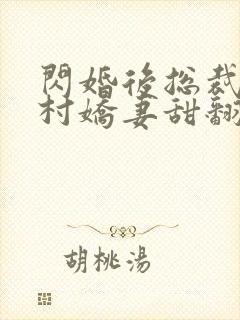 閃婚後總裁
村嬌妻甜翻
胡桃湯